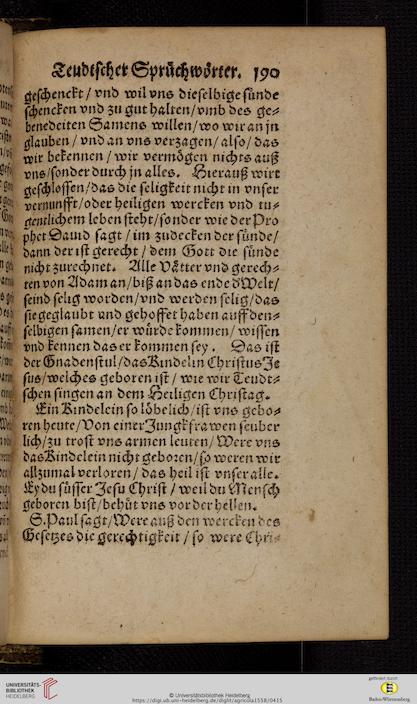 Teudtscher Sprüchwörter. 190
geschenckt / vnd wil vns dieselbige sünde
schencken vnd zu gut halten/vmb des ge=
benedeiten Samens willen/wo wir an jn
glauben / vnd an vns verzagen/also/das
wir bekennen / wir vermögen nichts auß
vns/sonder durch jn alles. Hierauß wirt
geschlossen/das die seligkeit nicht in vnser
vernunfft/oder heiligen wercken vnd tu=
gentlichem leben steht/sonder wie der Pro
phet Dauid sagt / im zudecken der sünde/
dann der ist gerecht / dem Gott die sünde
nicht zurechnet. Alle Vätter vnd gerech=
ten von Adam an/biß an das ende d'Welt/
seind selig worden/vnd werden selig/das
sie geglaubt vnd gehoffet haben auff den=
selbigen samen/er würde kommen/ wissen
vnd kennen das er kommen sey. Das ist
der Gnadenstul/das Kindelin Christus Je
sus/welches geboren ist / wie wir Teudt=
schen singen an dem Heiligen Christag.
Ein Kindelein so löbelich/ist vns gebo=
ren heute/Von einer Jungkfrawen seuber
lich/zu trost vns armen leuten/Were vns
das Kindelein nicht geboren/so weren wir
allzumal verloren/ das heil ist vnser alle.
Ey du süsser Jesu Christ / weil du Mensch
geboren bist/behüt vns vor der hellen.
S. Paul sagt/Were auß den wercken des
Gesetzes die gerechtigkeit / so were Chri=
UNIVERSITÄTS-
BIBLIOTHEK
HEIDELBERG
© Universitätsbibliothek Heidelberg
https://digi.ub.uni-heidelberg.de/diglit/agricola1558/0415
gefördert durch
Baden-Württemberg